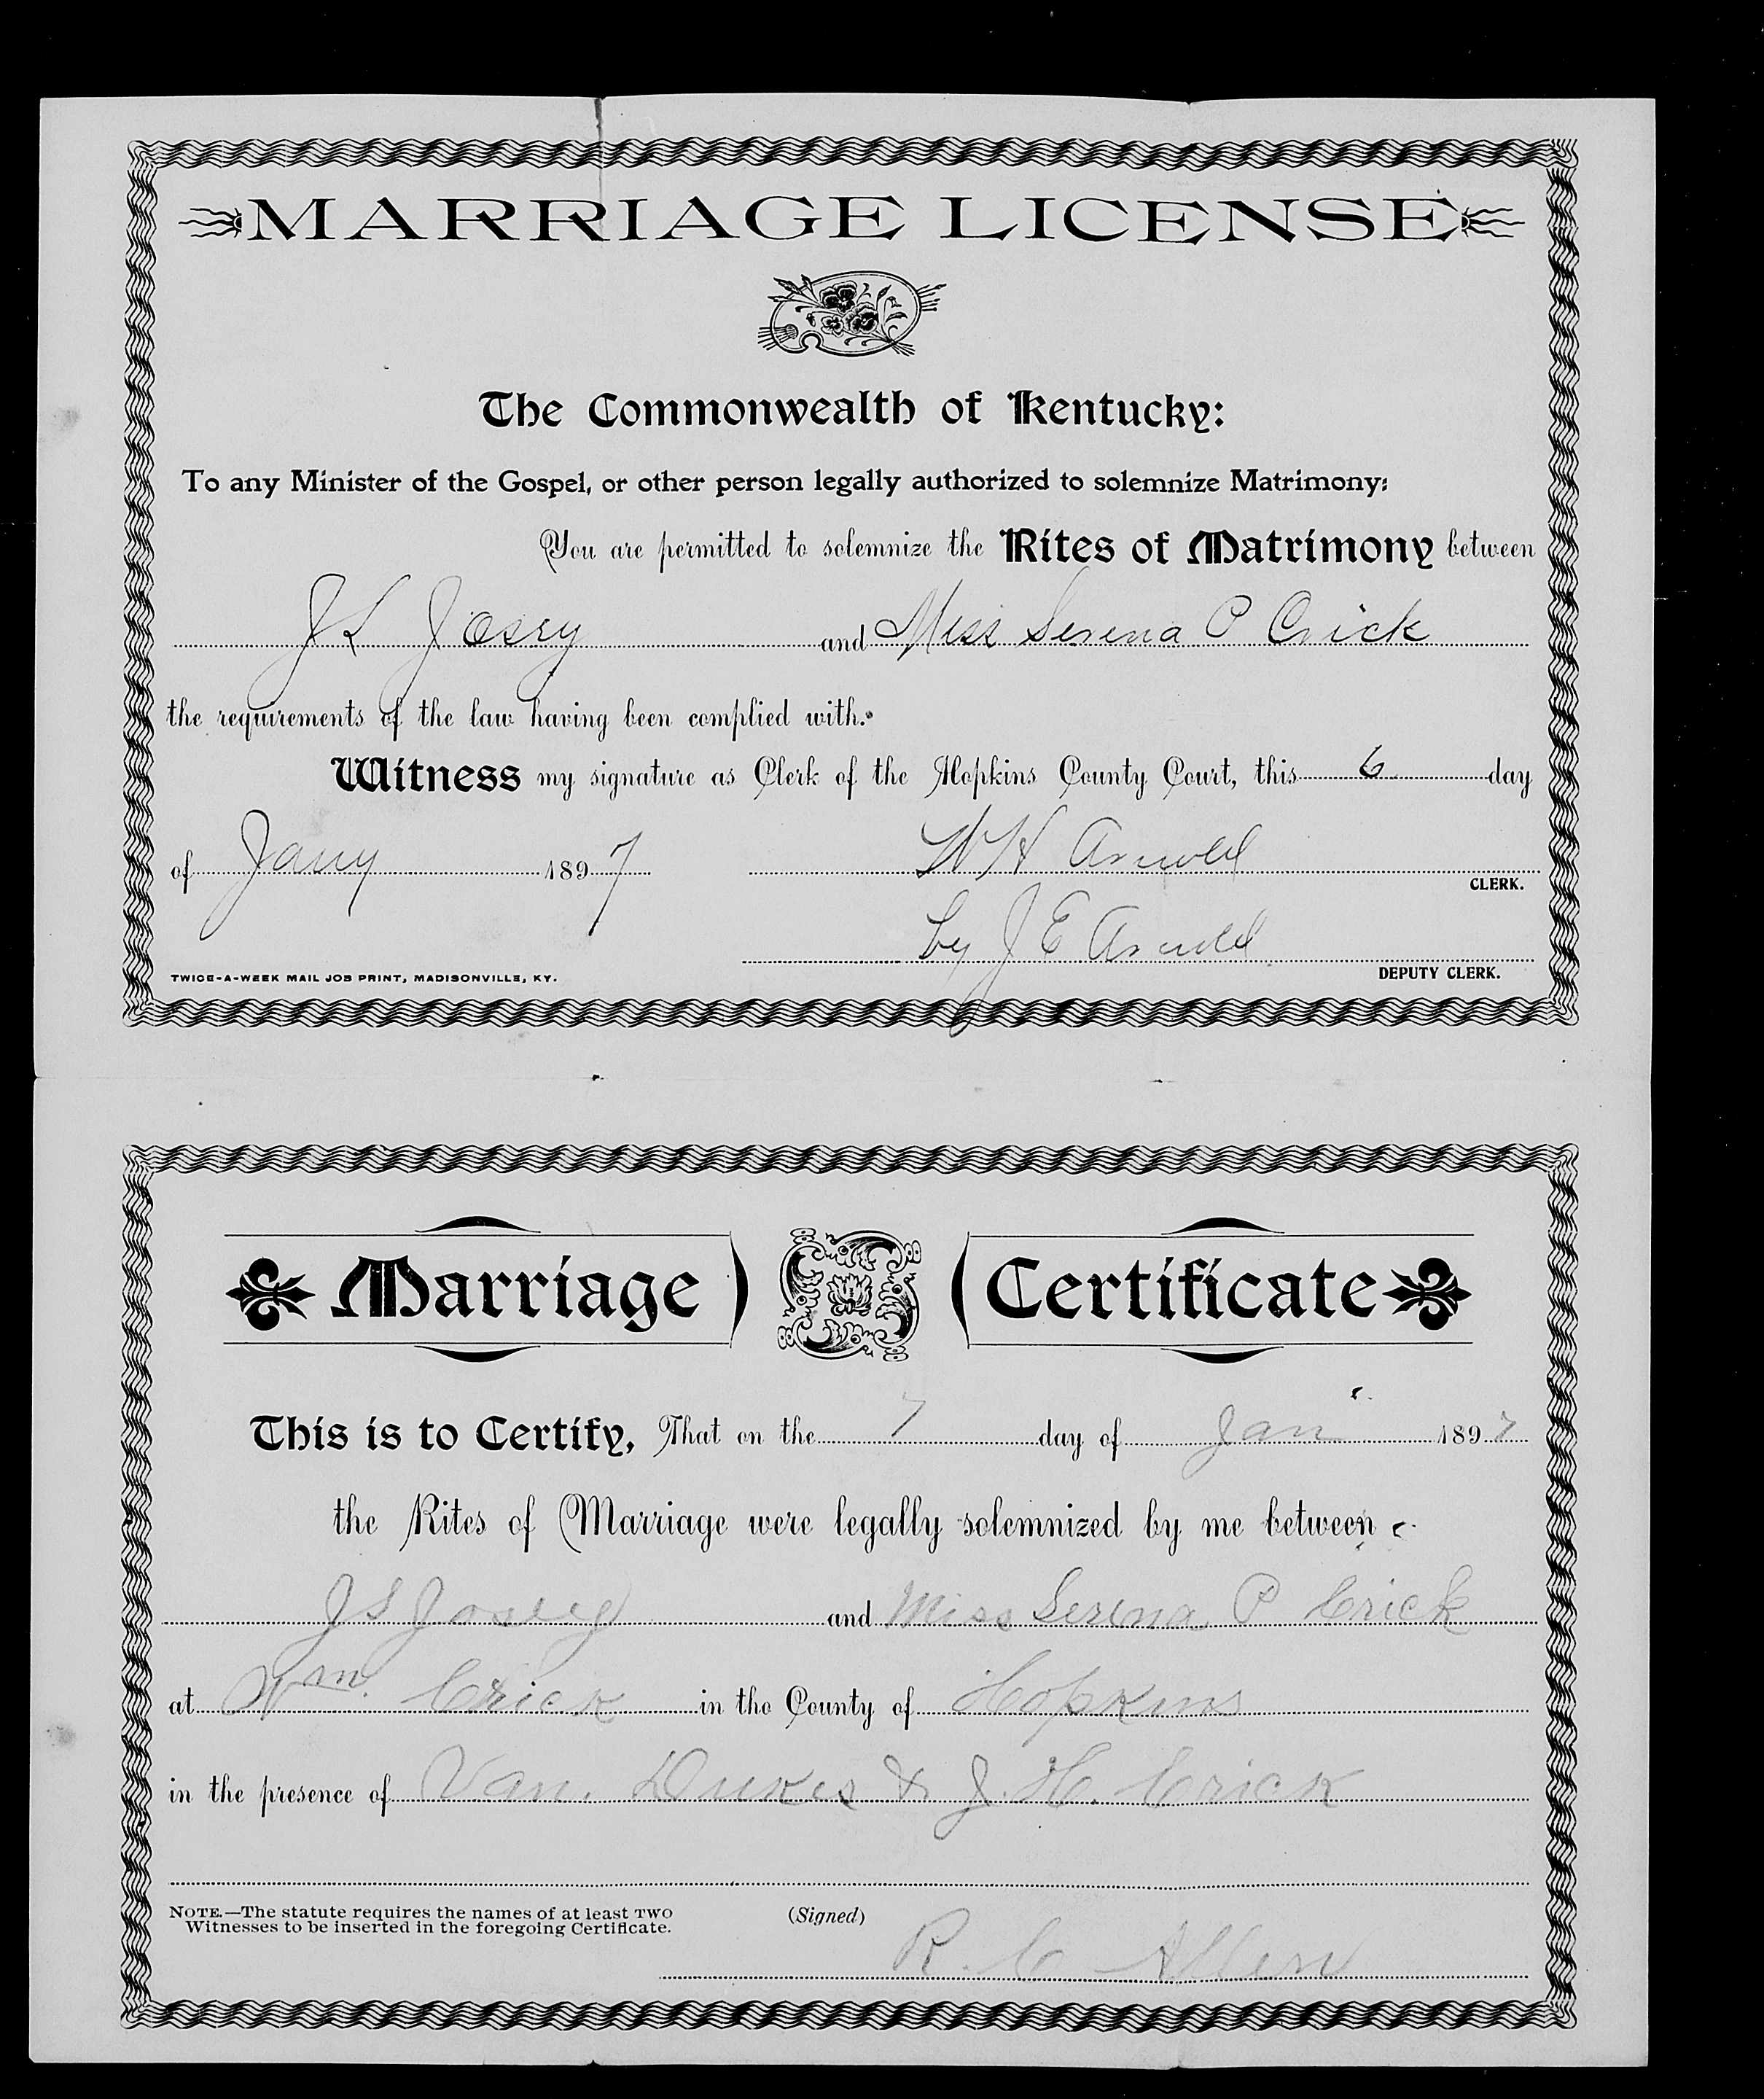 MARRIAGE LICENSE
The Commonwealth of Kentucky:
To any Minister of the Gospel, or other person legally authorized to solemnize Matrimony:
You are permitted to solemnize the Rites of Matrimony between
J L Josey and Miss Serena P Crick
the requirements of the law having been complied with.
Witness my signature as Clerk of the Hopkins County Court, this 6 day
of Jany 1897 W H Arnold
CLERK.
by J E Arnold
TWICE-A-WEEK MAIL JOB PRINT, MADISONVILLE, KY. DEPUTY CLERK.
Marriage Certificate
This is to Certify, That on the 7 day of Jan 1897
the Rites of Marriage were legally solemnized by me between
J L Josey and Miss Serena P Crick
at Wm. Crick in the County of Hopkins
in the presence of Van. Dukes & J. H. Crick
NOTE.—The statute requires the names of at least TWO (Signed)
Witnesses to be inserted in the foregoing Certificate.
R. C Allen